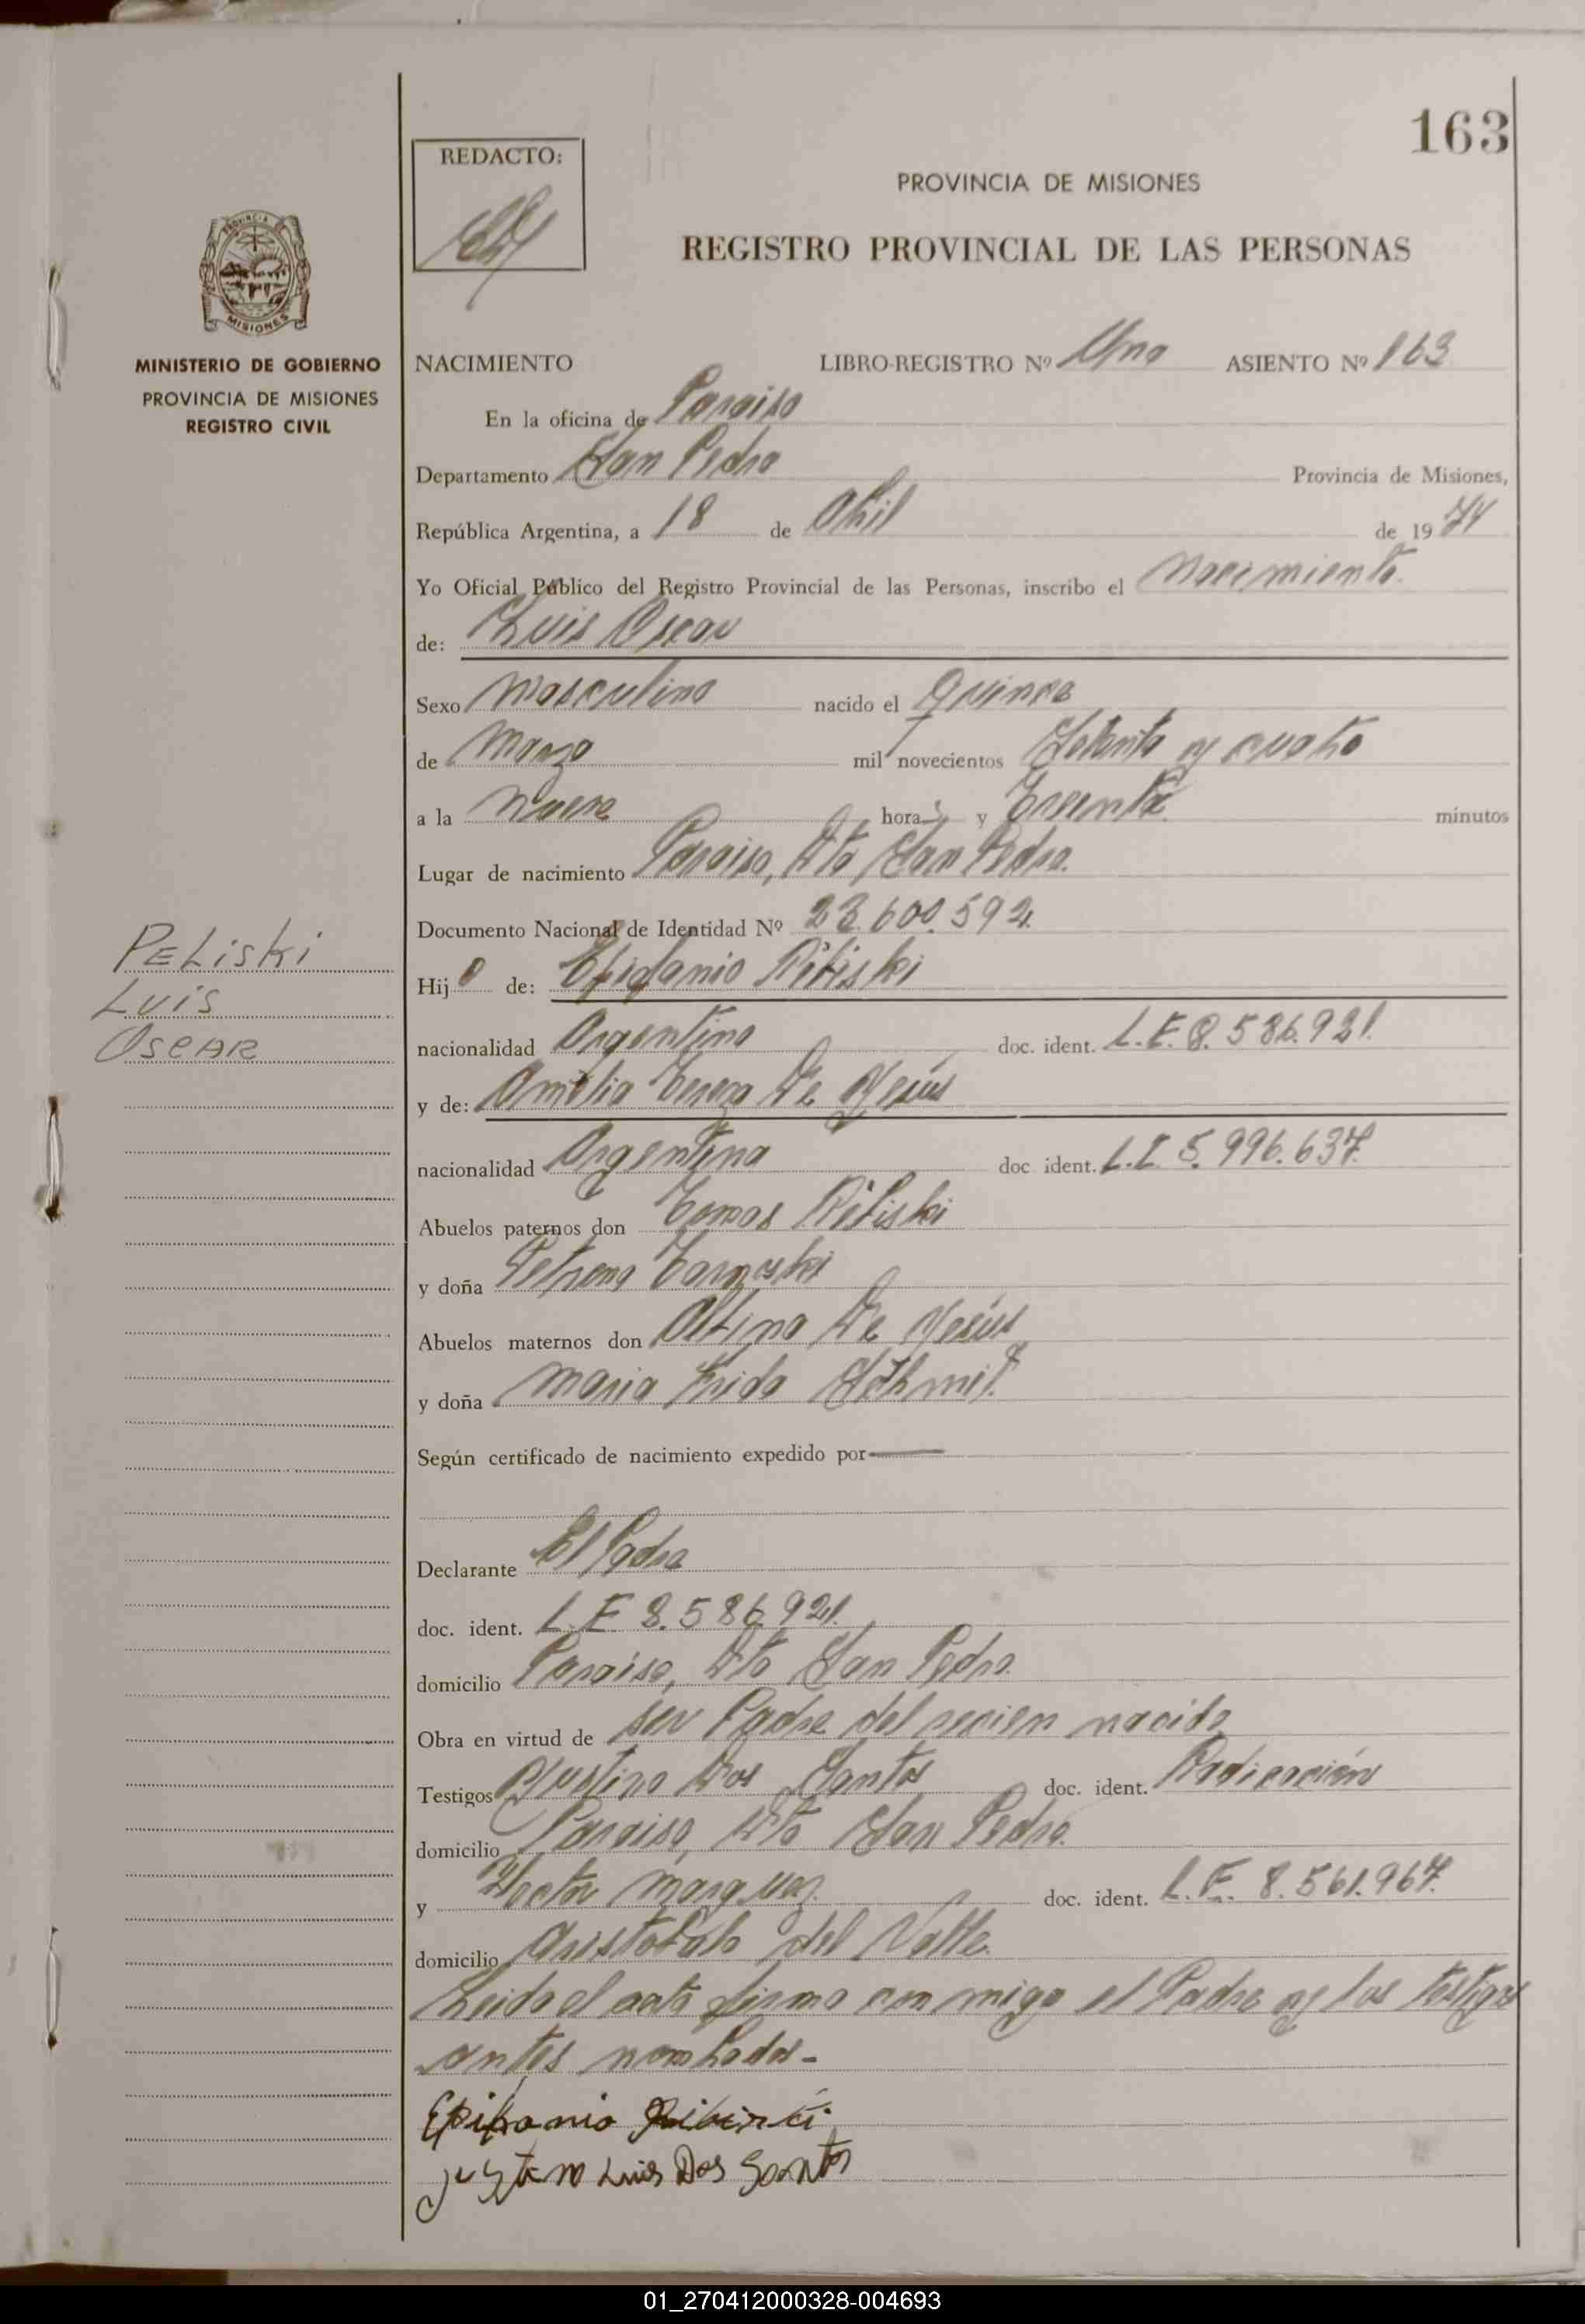 163
REDACTO:
PROVINCIA DE MISIONES
REGISTRO PROVINCIAL DE LAS PERSONAS
PROVINCIA
MISIONES
MINISTERIO DE GOBIERNO
PROVINCIA DE MISIONES
REGISTRO CIVIL
PELiski
LUiS
OSCAR
NACIMIENTO LIBRO-REGISTRO Nº Uno ASIENTO Nº 163
En la oficina de Paraiso
Departamento San Pedro Provincia de Misiones,
República Argentina, a 18 de Abril de 1974
Yo Oficial Público del Registro Provincial de las Personas, inscribo el Nacimiento
de: Luis Oscar
Sexo Masculino nacido el Quince
de Marzo mil novecientos Setenta y cuatro
a la Nueve horas y Treinta minutos
Lugar de nacimiento Paraiso, Dto San Pedro.
Documento Nacional de Identidad Nº 23.600.592.
Hijo de: Epifanio
nacionalidad Argentino doc. ident. L.E. 8.586.921.
y de: Amelia Tereza De Jesús
nacionalidad Argentina doc ident. 5.996.637.
Abuelos paternos don Tomas
y doña Petrona
Abuelos maternos don Albino De Jesús
y doña Maria Frida
Según certificado de nacimiento expedido por
Declarante El Padre
doc. ident. L.E 8.586.921.
domicilio Paraiso, Dto San Pedro.
Obra en virtud de ser Padre del recien nacido
Testigos Justino Dos Santos doc. ident. Radicación
domicilio Paraiso, Dto San Pedro.
y Hector Marquez. doc. ident. L.E. 8.561.967.
domicilio Aristobulo del Valle.
Leida el acta firma con migo el Padre y los testigos
antes nombrados-
Epifanio
Justino Luis Dos Santos
01_270412000328-004693